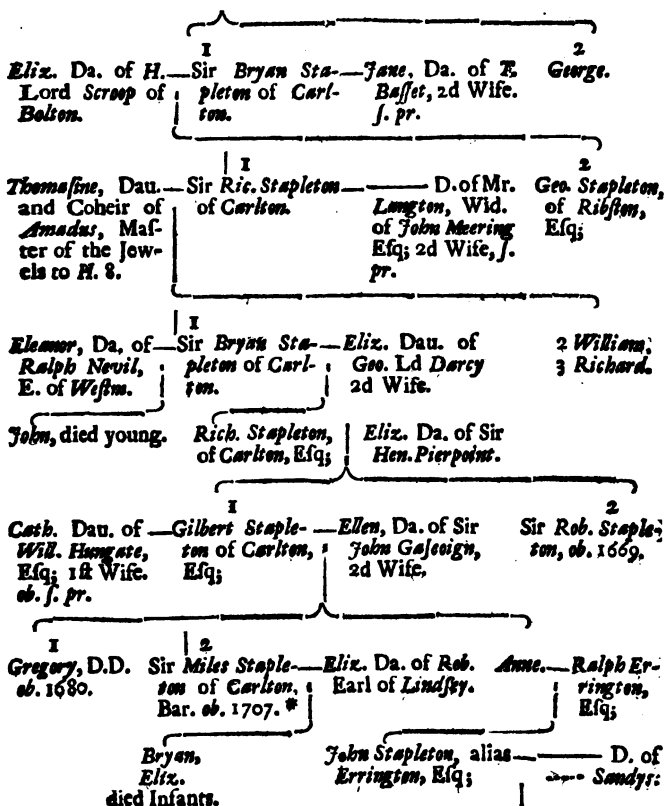 1
2
Eliz. Da. of H.
Lord Scroop of
Bolton.
Sir Bryan Sta-
pleton of Carl-
ton.
Jane, Da. of T.
Baſſet, 2d Wife.
ſ. pr.
George.
1
2
Thomaſine, Dau.
and Coheir of
Amadus, Maſ-
ter of the Jew-
els to H. 8.
Sir Ric. Stapleton
of Carlton.
D. of Mr.
Langton, Wid.
of John Meering
Eſq; 2d Wife, ſ.
pr.
Geo. Stapleton,
of Ribſton,
Eſq;
1
Eleanor, Da. of
Ralph Nevil,
E. of Weſtm.
Sir Bryan Sta-
pleton of Carl-
ton.
Eliz. Dau. of
Geo. Ld Darcy
2d Wife.
2 William.
3 Richard.
John, died young.
Rich. Stapleton,
of Carlton, Eſq;
Eliz. Da. of Sir
Hen. Pierpoint.
1
2
Cath. Dau. of
Will. Hungate,
Eſq; 1ſt Wife.
ob. ſ. pr.
Gilbert Staple-
ton of Carlton,
Eſq;
Ellen, Da. of Sir
John Gaſcoign,
2d Wife.
Sir Rob. Staple-
ton, ob. 1669.
1
2
Gregory, D.D.
ob. 1680.
Sir Miles Staple-
ton of Carlton,
Bar. ob. 1707. *
Eliz. Da. of Rob.
Earl of Lindſey.
Anne.
Ralph Er-
rington,
Eſq;
Bryan,
Eliz.
died Infants.
John Stapleton, alias
Errington, Eſq;
D. of
Sandys: